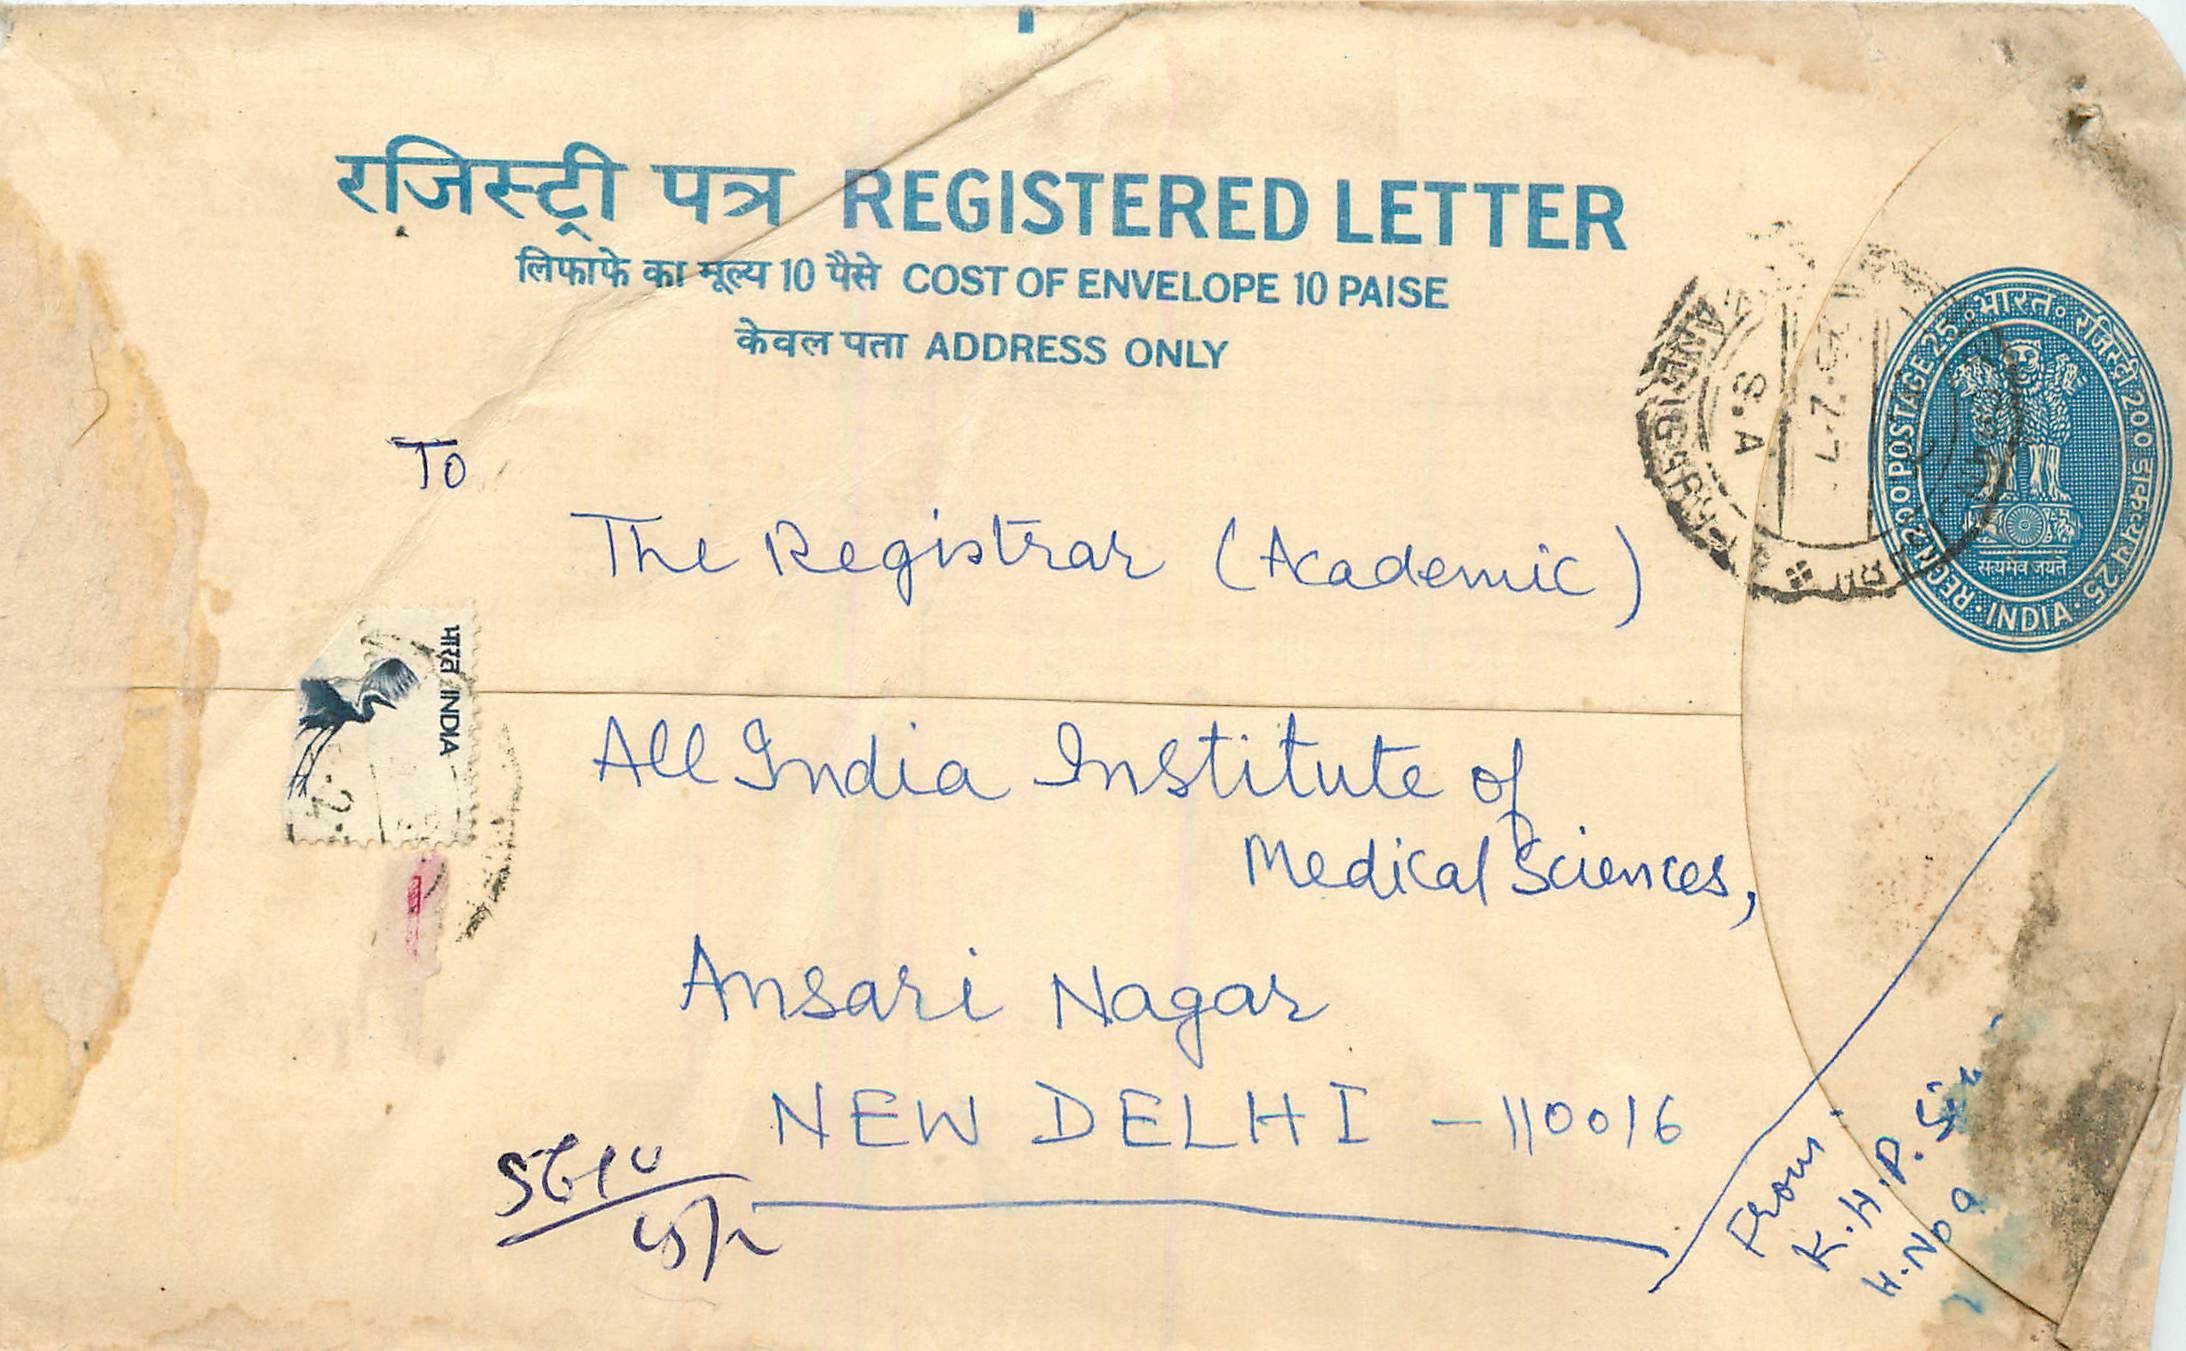 रजिस्ट्री पत्र REGISTERED LETTER
लिफाफे का मूल्य 10 पैसे COST OF ENVELOPE 10 PAISE
केवल पता ADDRESS ONLY
भारत रजिस्ट्री 200 डाकव्यय 25
REGN 200 POSTAGE 25
सत्यमेव जयते
INDIA
S.A
To
The Registrar (Academic)
भारत INDIA
All India Institute of
Medical Sciences,
Ansari Nagar
NEW DELHI - 110016
From:
K.H.P.
H.No